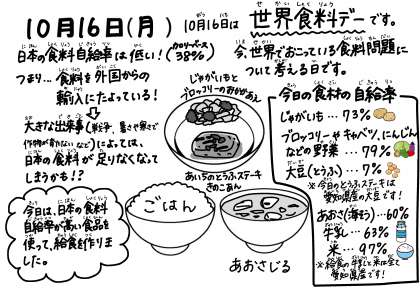 10月16日(月)
10月16日は世界食料デーです。
日本の食料自給率は低い!(カロリーベース38%)
つまり…食料を外国からの
輸入にたよっている!
大きな出来事(戦争、暑さや寒さで
作物が育たないなど)によっては、
日本の食料が足りなくなって
しまうかも!?
今日は、日本の食料
自給率が高い食品を
使って、給食を作りま
した。
今、世界でおこっている食料問題に
ついて考える日です。
じゃがいもと
ブロッコリーのおかかあえ
あいちのとうふステーキ
きのこあん
ごはん
あおさじる
今日の食材の自給率
じゃがいも…73%
ブロッコリーやキャベツ、にんじん
などの野菜…79%
大豆(とうふ)…7%
※今日のとうふステーキは
愛知県産の大豆です!
あおさ(海そう)…60%
牛乳…63%
米…97%
※給食の牛乳と米は全て
愛知県産です!